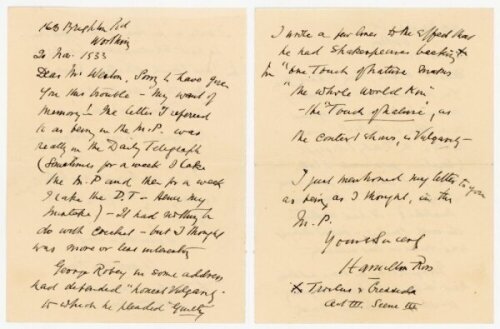 163 Brighton Rd
Worthing
20 Nov. 1933
Dear Mr Weston, Sorry to have given
you this trouble - my want of
memory! The letter I referred
to as being in the M.P. was
really in the Daily Telegraph
(Sometimes for a week I take
the M.P and then for a week
I take the D.T - hence my
mistake) - It had nothing to
do with cricket - but I thought
was more or less interesting
George Robey in some address
had defended "honest Vulgarity"
to which he pleaded "Guilty"
I write a few lines to the effect that
he had Shakespeare's backing x
for "One Touch of Nature makes
"the whole world Kin"
- the "Touch of Nature", as
the context shows, is Vulgarity -
I just mentioned my letter to you
as being as I thought, in the
M.P.
Yours Sincerely
Hamilton Ross
x Troilus & Cressida
Act III. Scene III